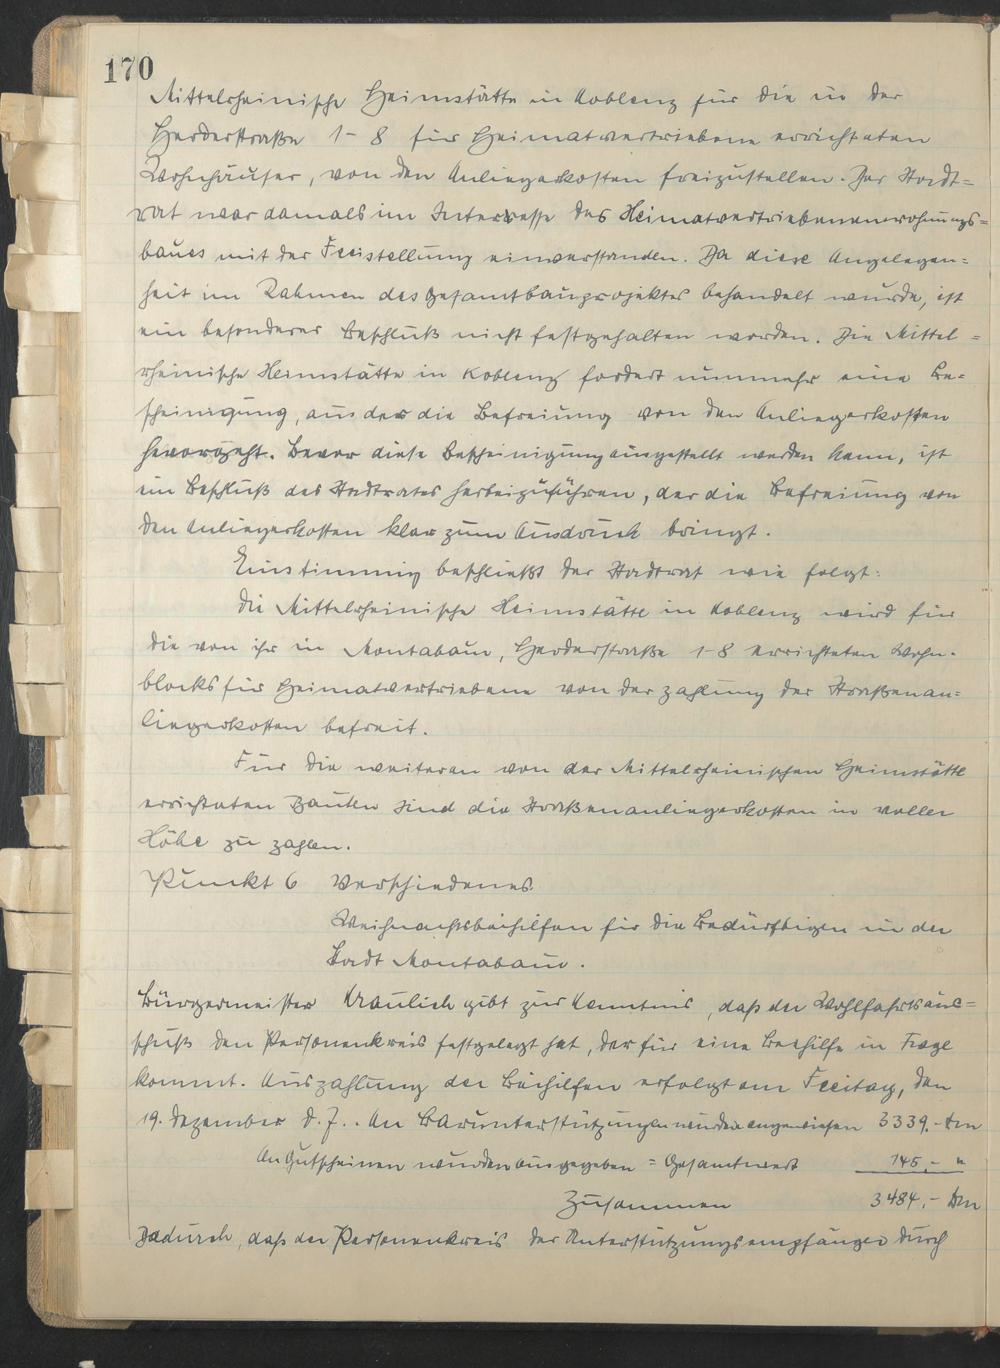 170
Mittelrheinische Heimstätte in Koblenz für die in der
Herderstraße 1-8 für Heimatvertriebene errichteten
Wohnhäuser, von den Anliegerkosten freizustellen. Der Stadt=
rat war damals im Interesse des Heimatvertriebenenwohnungs=
baues mit der Freistellung einverstanden. Da diese Angelegen=
heit im Rahmen des Gesamtbauprojektes behandelt wurde, ist
ein besonderer Beschluß nicht festgehalten worden. Die Mittel=
rheinische Heimstätte in Koblenz fordert nunmehr eine Be=
scheinigung, aus der die Befreiung von den Anliegerkosten
hervorgeht. Bevor diese Bescheinigung ausgestellt werden kann, ist
ein Beschluß des Stadtrates herbeizuführen, der die Befreiung von
den Anliegerkosten klar zum Ausdruck bringt.
Einstimmig beschließt der Stadtrat wie folgt:
Die Mittelrheinische Heimstätte in Koblenz wird für
die von ihr in Montabaur, Herderstraße 1-8 errichteten Wohn-
blocks für Heimatvertriebene von der Zahlung der Straßenan=
liegerkosten befreit.
Für die weiteren von der Mittelrheinischen Heimstätte
errichteten Bauten sind die Straßenanliegerkosten in voller
Höhe zu zahlen.
Punkt 6 Verschiedenes
Weihnachtsbeihilfen für die Bedürftigen in der
Stadt Montabaur.
Bürgermeister Kraulich gibt zur Kenntnis, daß der Wohlfahrtsaus=
schuß den Personenkreis festgelegt hat, der für eine Beihilfe in Frage
kommt. Auszahlung der Beihilfen erfolgt am Freitag, den
19. Dezember d. J.. An Barunterstützungen wurden angewiesen 3339.- Dm
An Gutscheinen wurden ausgegeben = Gesamtwert 145,- "
Zusammen 3484,- Dm
Dadurch, daß der Personenkreis der Unterstützungsempfänger durch